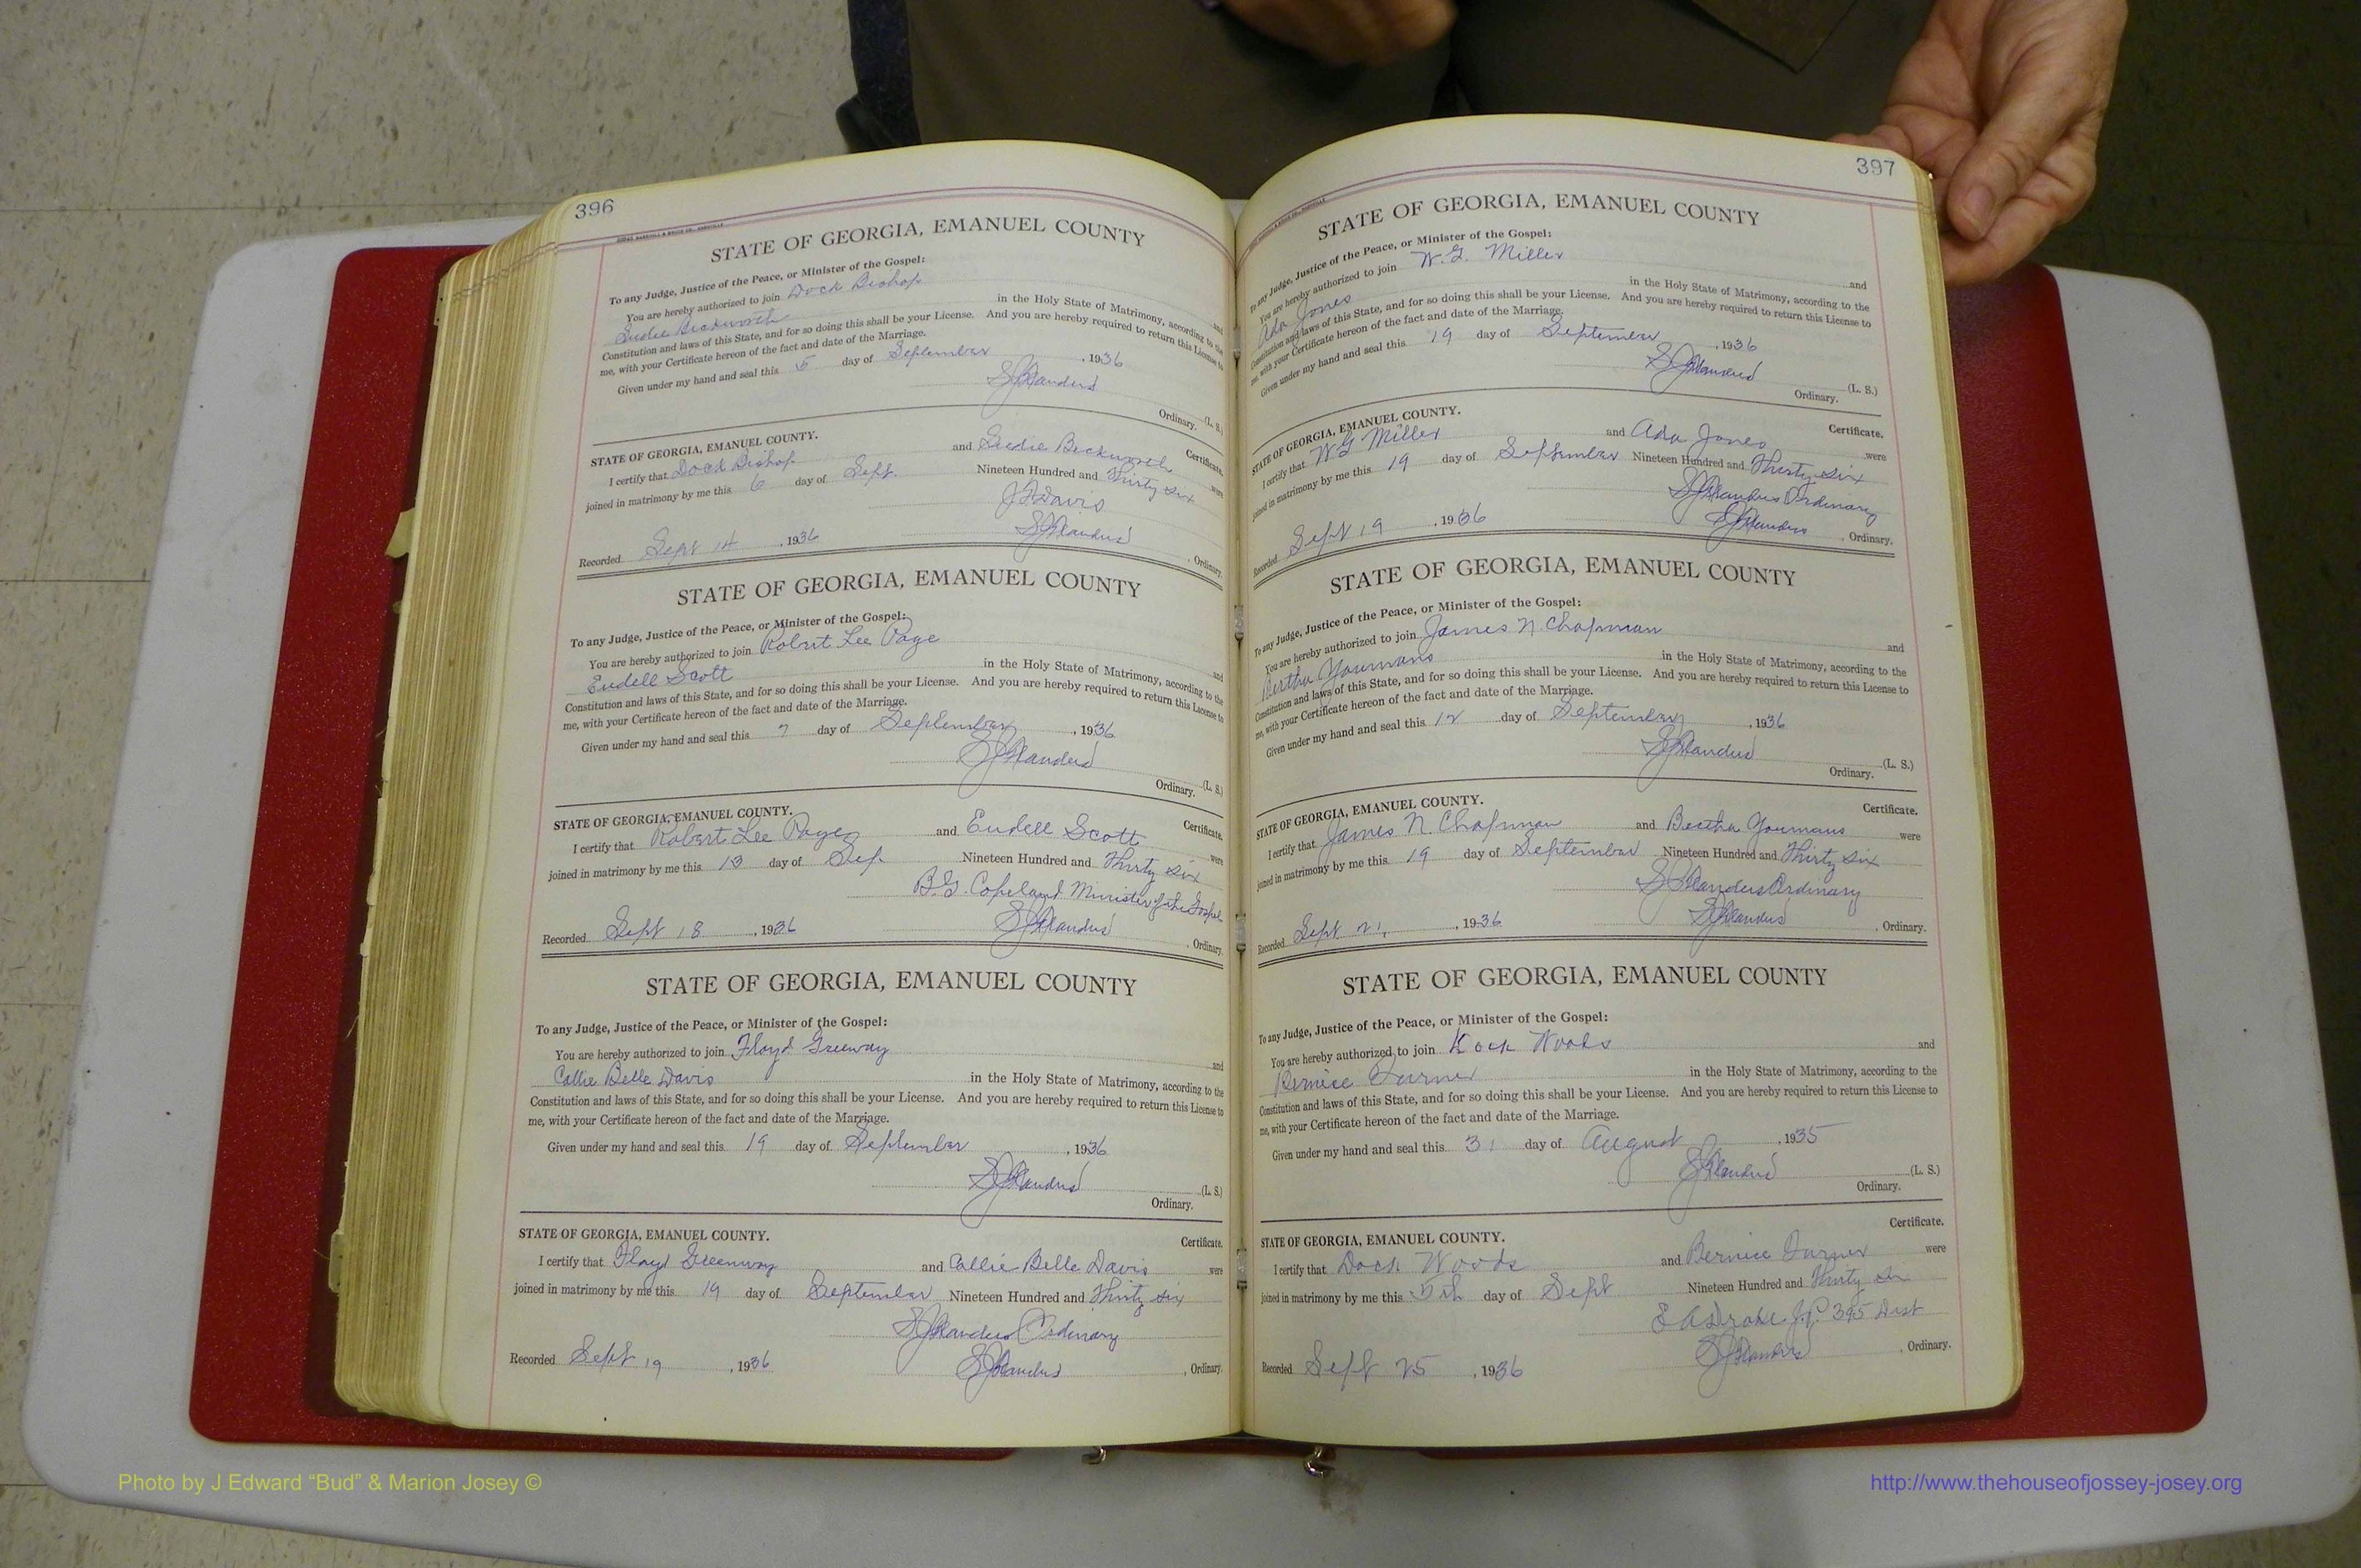 396
STATE OF GEORGIA, EMANUEL COUNTY
To any Judge, Justice of the Peace, or Minister of the Gospel:
You are hereby authorized to join Dock Bishop and
Beckworth in the Holy State of Matrimony, according to the
Constitution and laws of this State, and for so doing this shall be your License. And you are hereby required to return this License to
me, with your Certificate hereon of the fact and date of the Marriage.
Given under my hand and seal this 5 day of September, 1936
(L. S.)
Ordinary.
STATE OF GEORGIA, EMANUEL COUNTY. Certificate.
I certify that Dock Bishop and Beckworth were
joined in matrimony by me this 6 day of Sept. Nineteen Hundred and Thirty six
J F Davis
Recorded Sept 14, 1936 , Ordinary.
STATE OF GEORGIA, EMANUEL COUNTY
To any Judge, Justice of the Peace, or Minister of the Gospel:
You are hereby authorized to join Robert Lee Page and
Eudell Scott in the Holy State of Matrimony, according to the
Constitution and laws of this State, and for so doing this shall be your License. And you are hereby required to return this License to
me, with your Certificate hereon of the fact and date of the Marriage.
Given under my hand and seal this 7 day of September, 1936
(L. S.)
Ordinary.
STATE OF GEORGIA, EMANUEL COUNTY. Certificate.
I certify that Robert Lee Page and Eudell Scott were
joined in matrimony by me this 13 day of Sep Nineteen Hundred and Thirty six
B.G. Copeland Minister of the Gospel
Recorded Sept 18, 1936 , Ordinary.
STATE OF GEORGIA, EMANUEL COUNTY
To any Judge, Justice of the Peace, or Minister of the Gospel:
You are hereby authorized to join Floyd Greeway and
Callie Belle Davis in the Holy State of Matrimony, according to the
Constitution and laws of this State, and for so doing this shall be your License. And you are hereby required to return this License to
me, with your Certificate hereon of the fact and date of the Marriage.
Given under my hand and seal this 19 day of September, 1936
(L. S.)
Ordinary.
STATE OF GEORGIA, EMANUEL COUNTY. Certificate.
I certify that Floyd Greenway and Callie Belle Davis were
joined in matrimony by me this 19 day of September Nineteen Hundred and Thirty six
Ordinary
Recorded Sept 19, 1936 , Ordinary.
397
STATE OF GEORGIA, EMANUEL COUNTY
To any Judge, Justice of the Peace, or Minister of the Gospel:
You are hereby authorized to join W. G. Miller and
Ada Jones in the Holy State of Matrimony, according to the
Constitution and laws of this State, and for so doing this shall be your License. And you are hereby required to return this License to
me, with your Certificate hereon of the fact and date of the Marriage.
Given under my hand and seal this 19 day of September, 1936
(L. S.)
Ordinary.
STATE OF GEORGIA, EMANUEL COUNTY. Certificate.
I certify that W G Miller and Ada Jones were
joined in matrimony by me this 19 day of September Nineteen Hundred and Thirty six
Ordinary
Recorded Sept 19, 1936 , Ordinary.
STATE OF GEORGIA, EMANUEL COUNTY
To any Judge, Justice of the Peace, or Minister of the Gospel:
You are hereby authorized to join James N. Chapman and
Bertha Youmans in the Holy State of Matrimony, according to the
Constitution and laws of this State, and for so doing this shall be your License. And you are hereby required to return this License to
me, with your Certificate hereon of the fact and date of the Marriage.
Given under my hand and seal this 12 day of September, 1936
(L. S.)
Ordinary.
STATE OF GEORGIA, EMANUEL COUNTY. Certificate.
I certify that James N. Chapman and Bertha Youmans were
joined in matrimony by me this 19 day of September Nineteen Hundred and Thirty six
Ordinary
Recorded Sept 21, 1936 , Ordinary.
STATE OF GEORGIA, EMANUEL COUNTY
To any Judge, Justice of the Peace, or Minister of the Gospel:
You are hereby authorized to join Dock Woods and
Bernice Turner in the Holy State of Matrimony, according to the
Constitution and laws of this State, and for so doing this shall be your License. And you are hereby required to return this License to
me, with your Certificate hereon of the fact and date of the Marriage.
Given under my hand and seal this 31 day of August, 1935
(L. S.)
Ordinary.
STATE OF GEORGIA, EMANUEL COUNTY. Certificate.
I certify that Dock Woods and Bernice Turner were
joined in matrimony by me this 5th day of Sept Nineteen Hundred and Thirty six
J.P. 395 Dist
Recorded Sept 25, 1936 , Ordinary.
Photo by J Edward “Bud” & Marion Josey ©
http://www.thehouseofjossey-josey.org